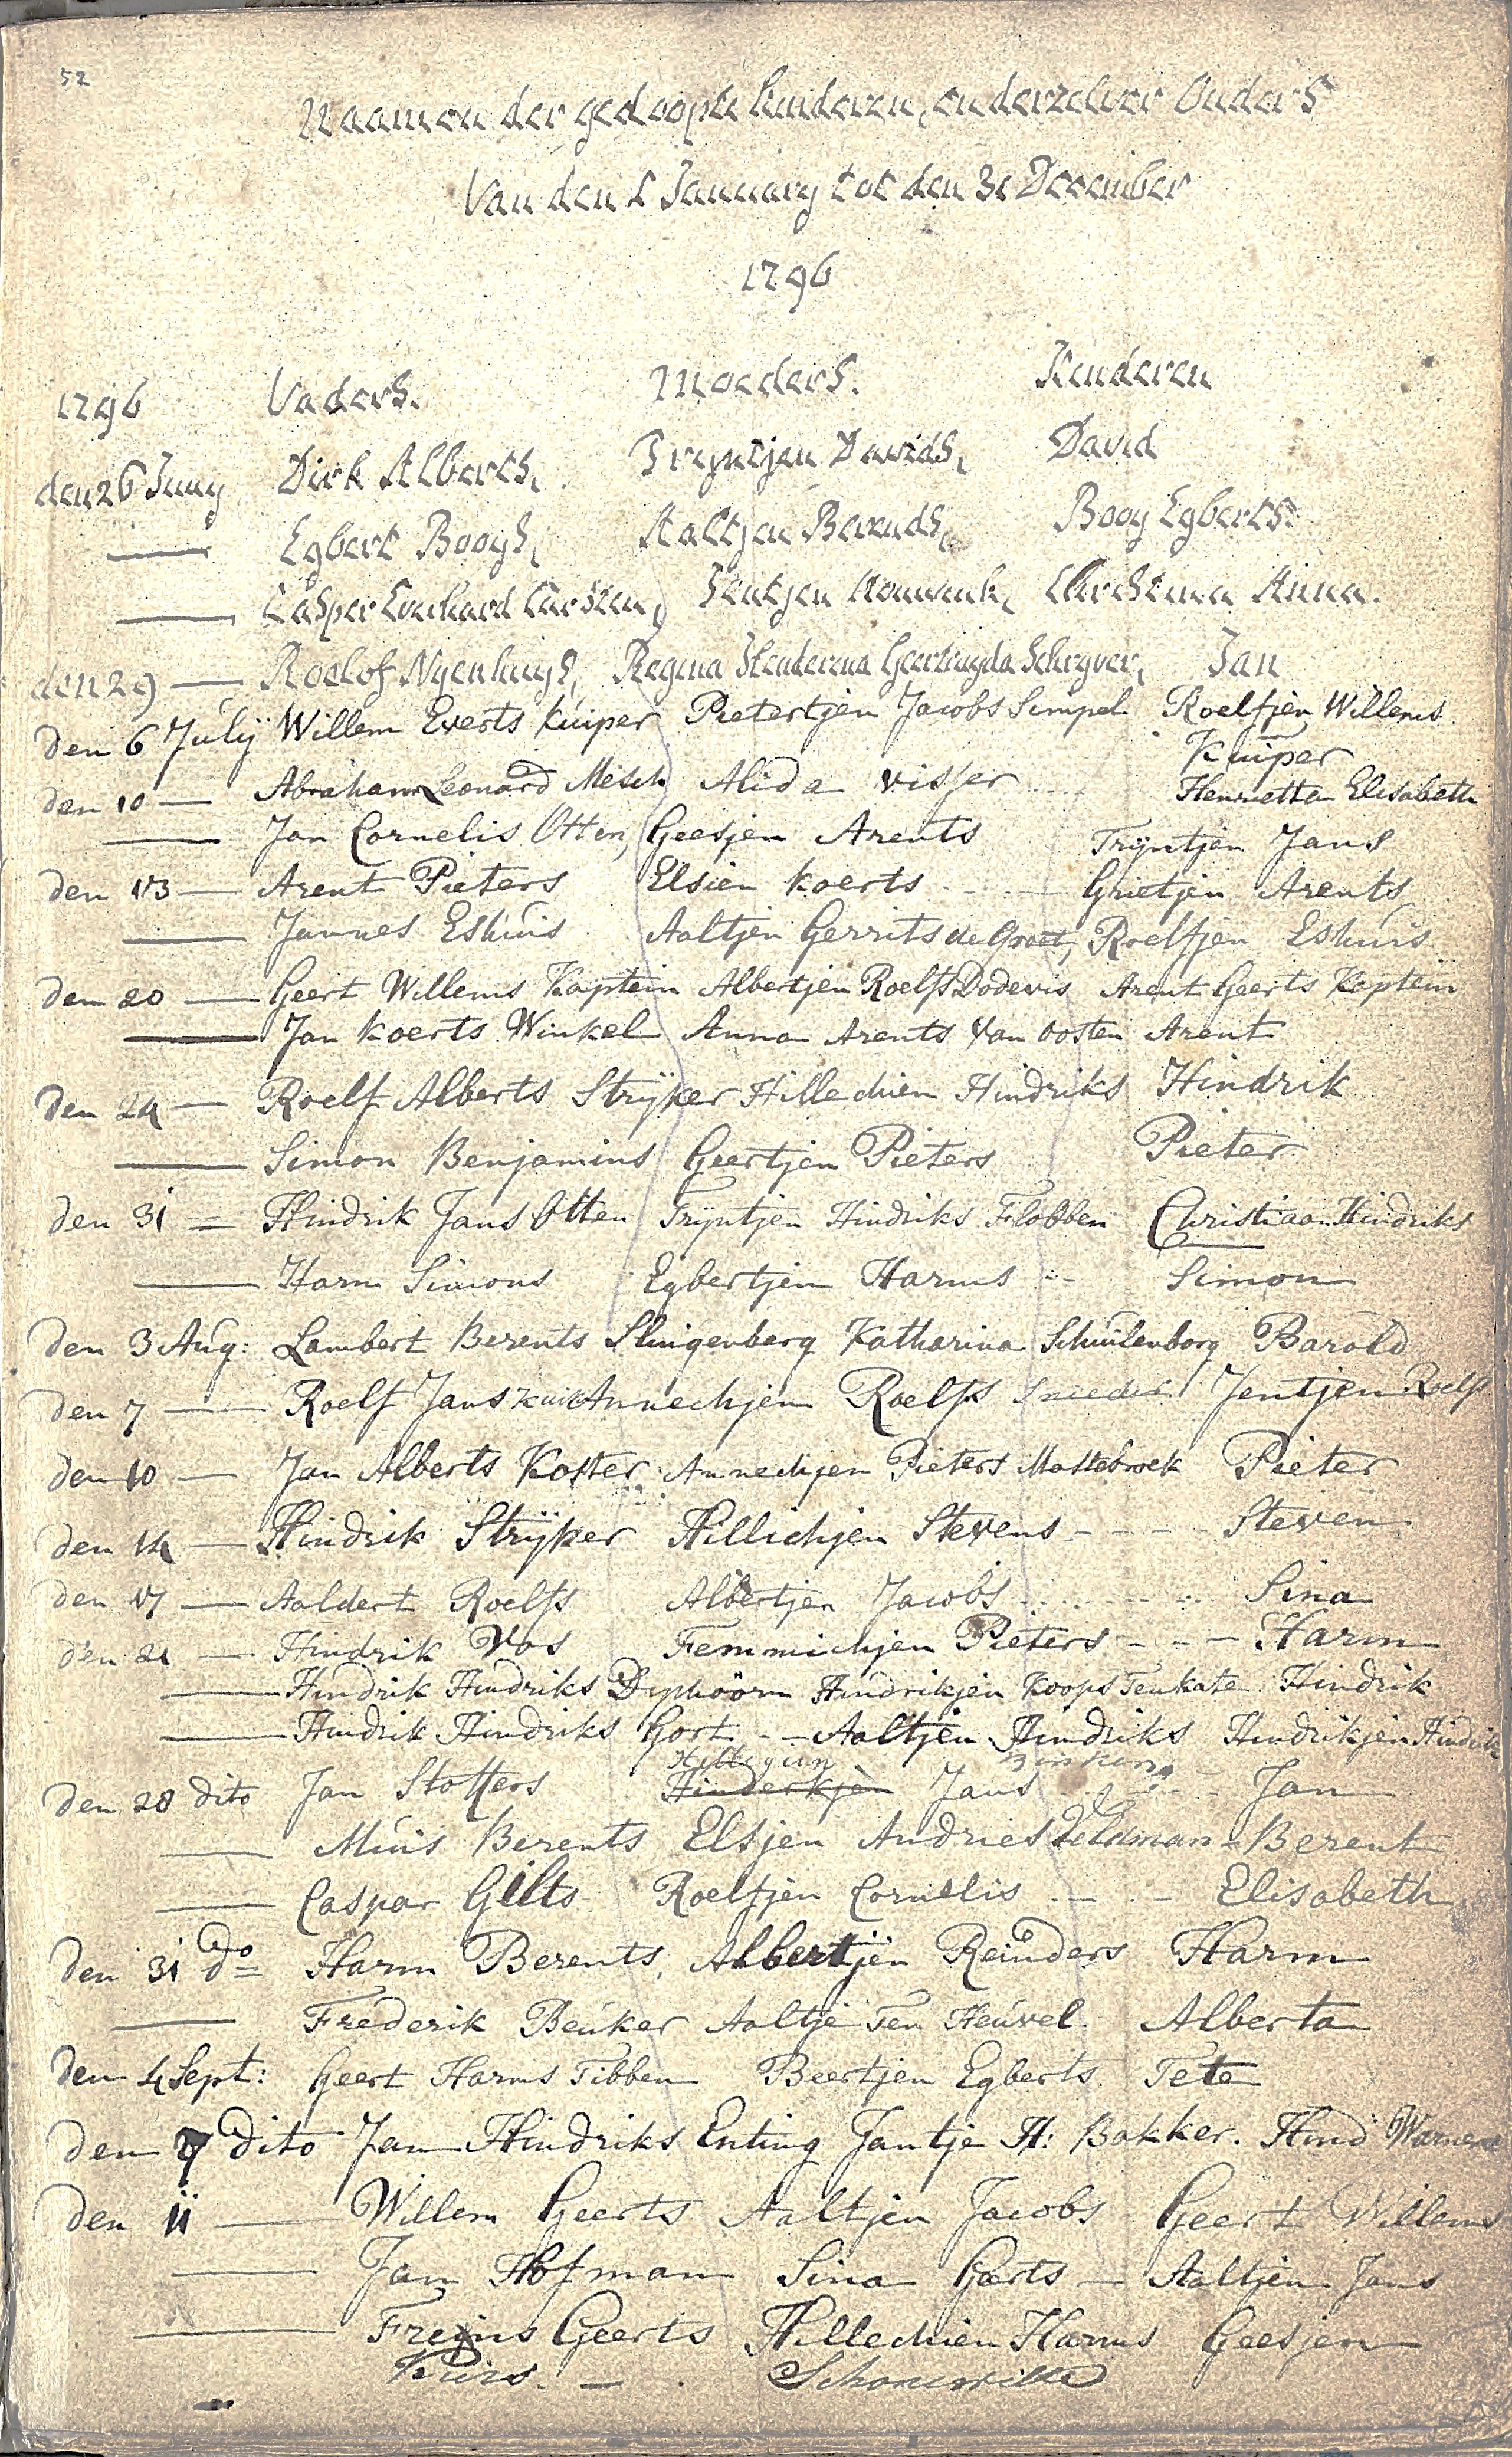 52
Naamen der gedoopte kinderen, en derzelver Ouders
Van den 1 January tot den 31 December
1796
1796 Vaders. Moeders. Kinderen
den 26 Juny Dirk Alberts, Tryntjen Davids, David
— Egbert Booys, Aaltjen Berends, Booy Egberts.
— Casper Everhard Carsten, Jentjen Christina Anna.
den 29 — Roelof Nyenhuys, Regina Henderina Geertruyda Schryver, Jan
den 6 Julÿ Willem Everts Kuiper Pietertjen Jacobs Simpel Roelfjen Willems
Kuiper
den 10 — Abraham Leonard Mesch Alida visser Henrietta Elisabeth
— Jan Cornelis Otten, Geesjen Arents Trijntjen Jans
den 13 — Arent Pieters Elsien Koerts Grietjen Arents
— Jannes Eshuis Aaltjen Gerrits de Groot, Roelfjen Eshuis
den 20 — Geert Willems Kaptein Albertjen Roelfs Dodevis Arent Geerts Kaptein
— Jan Koerts Winkel Anna Arents van Oosten Arent
den 24 — Roelf Alberts Strÿker Hillechien Hindriks Hindrik
— Simon Benjamins Geertjen Pieters Pieter
den 31 = Hindrik Jans Otten Trijntjen Hindriks Flobben Christiaan Hindriks
— Harm Simons Egbertjen Harms -- Simon
den 3 Aug: Lambert Berents Slingenberg Katharina Schuilenborg Barold
den 7 — Roelf Jans Kuik Annechjen Roelfs Snieder Jentjen Roelfs
den 10 — Jan Alberts Koster Annechjen Pieters Mastebroek Pieter
den 14 — Hindrik Strÿker Hillichjen Stevens - - - - Steven
den 17 — Aaldert Roelfs Albertjen Jacobs Sina
den 21 — Hindrik Vos Femmichjen Pieters - - - Harm
— Hindrik Hindriks Diphoorn Hindrikjen Koops Tenkate Hindrik
— Hindrik Hindriks Gort - - Aaltjen Hindriks Hindrikjen Hindriks
Hilligien
den 28 dito Jan Stoffers Hinderkjen Jans Jan
— Muis Berents Elsjen Andries Veldman - Berent
— Caspar Gilts Roelfjen Cornelis - - Elisabeth
den 31 do Harm Berents, Albertjen Reinders Harm
— Frederik Beuker Aaltje Ten Heuvel Alberta
den 4 Sept: Geert Harms Tibben Beertjen Egberts Tete
den 7 dito Jan Hindriks Enting Jantje H: Bakker. Hind Warner
den 11 — Willem Geerts Aaltjen Jacobs Geert Willems
— Jan Hofman Sina Geerts — Aaltjen Jans
— Freyns Geerts Hillechien Harms Geesjen
Schonewille